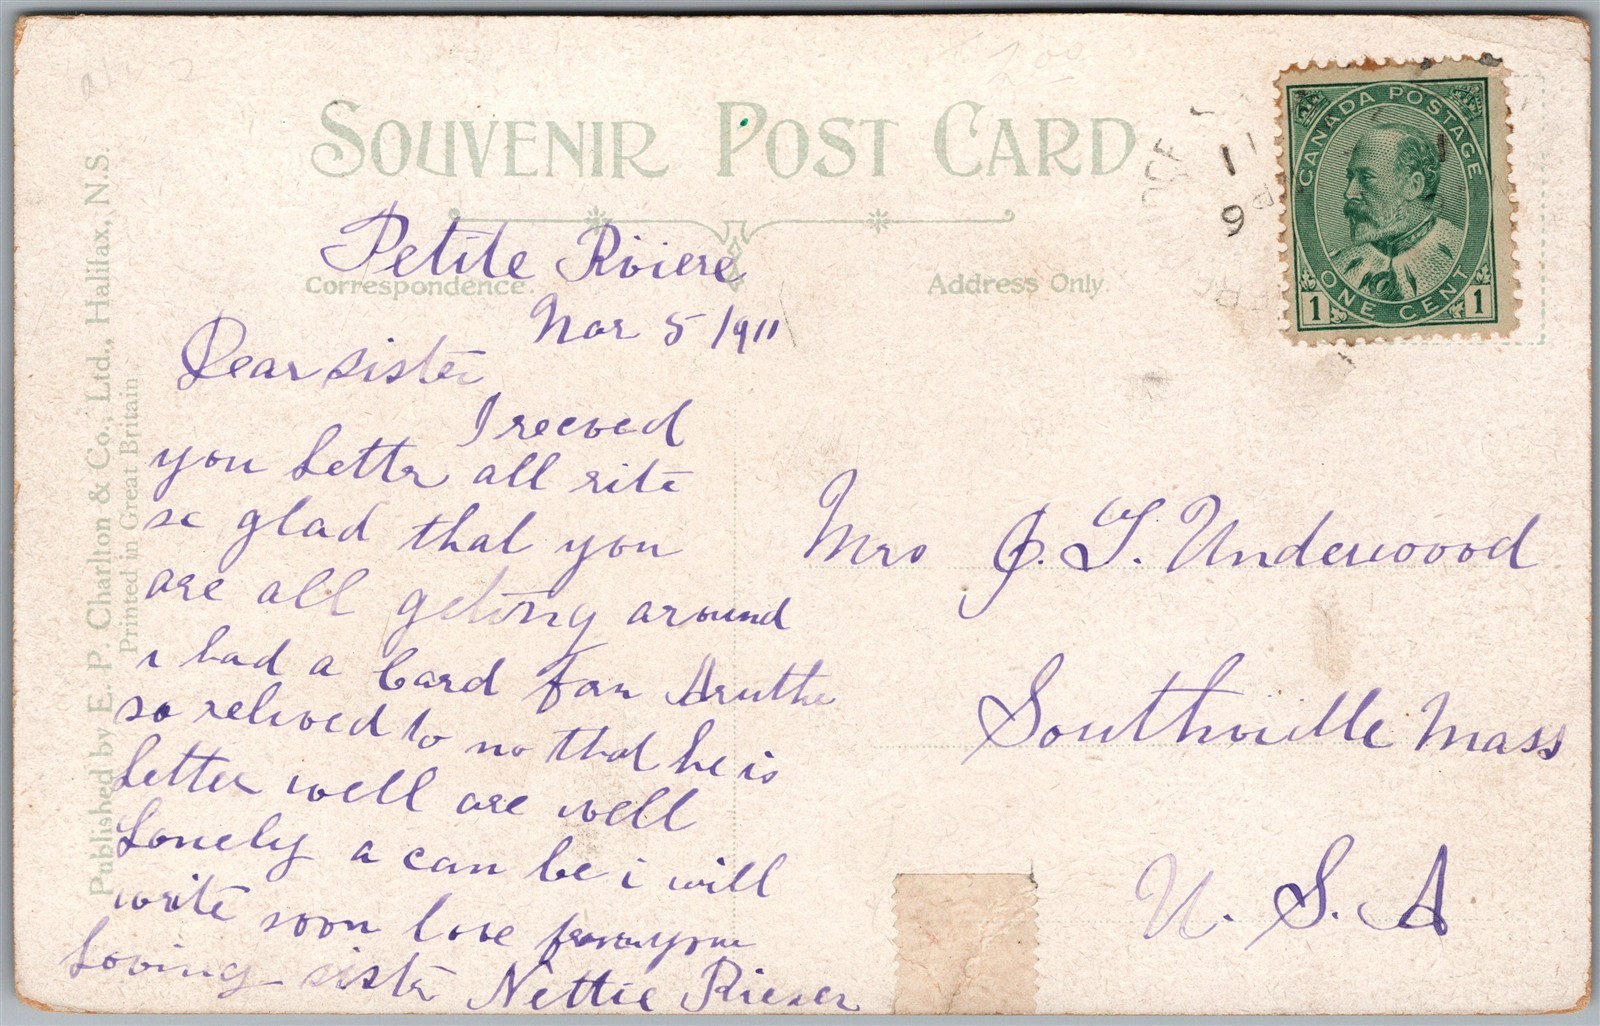 SOUVENIR POST CARD
Correspondence.
Address Only.
Published by E. P. Charlton & Co., Ltd., Halifax, N.S.
Printed in Great Britain
CANADA POSTAGE
1 ONE CENT 1
11
9
Petite Riviere
Mar 5/1911
Dear sister
I receved
you Letter all rite
so glad that you
are all geting around
i had a Card fon
so relived to no that he is
better well are well
Lonely a can be i will
write soon love from your
Loving sister Nettie
Mrs J. T. Underwood
Southville Mass
U. S. A